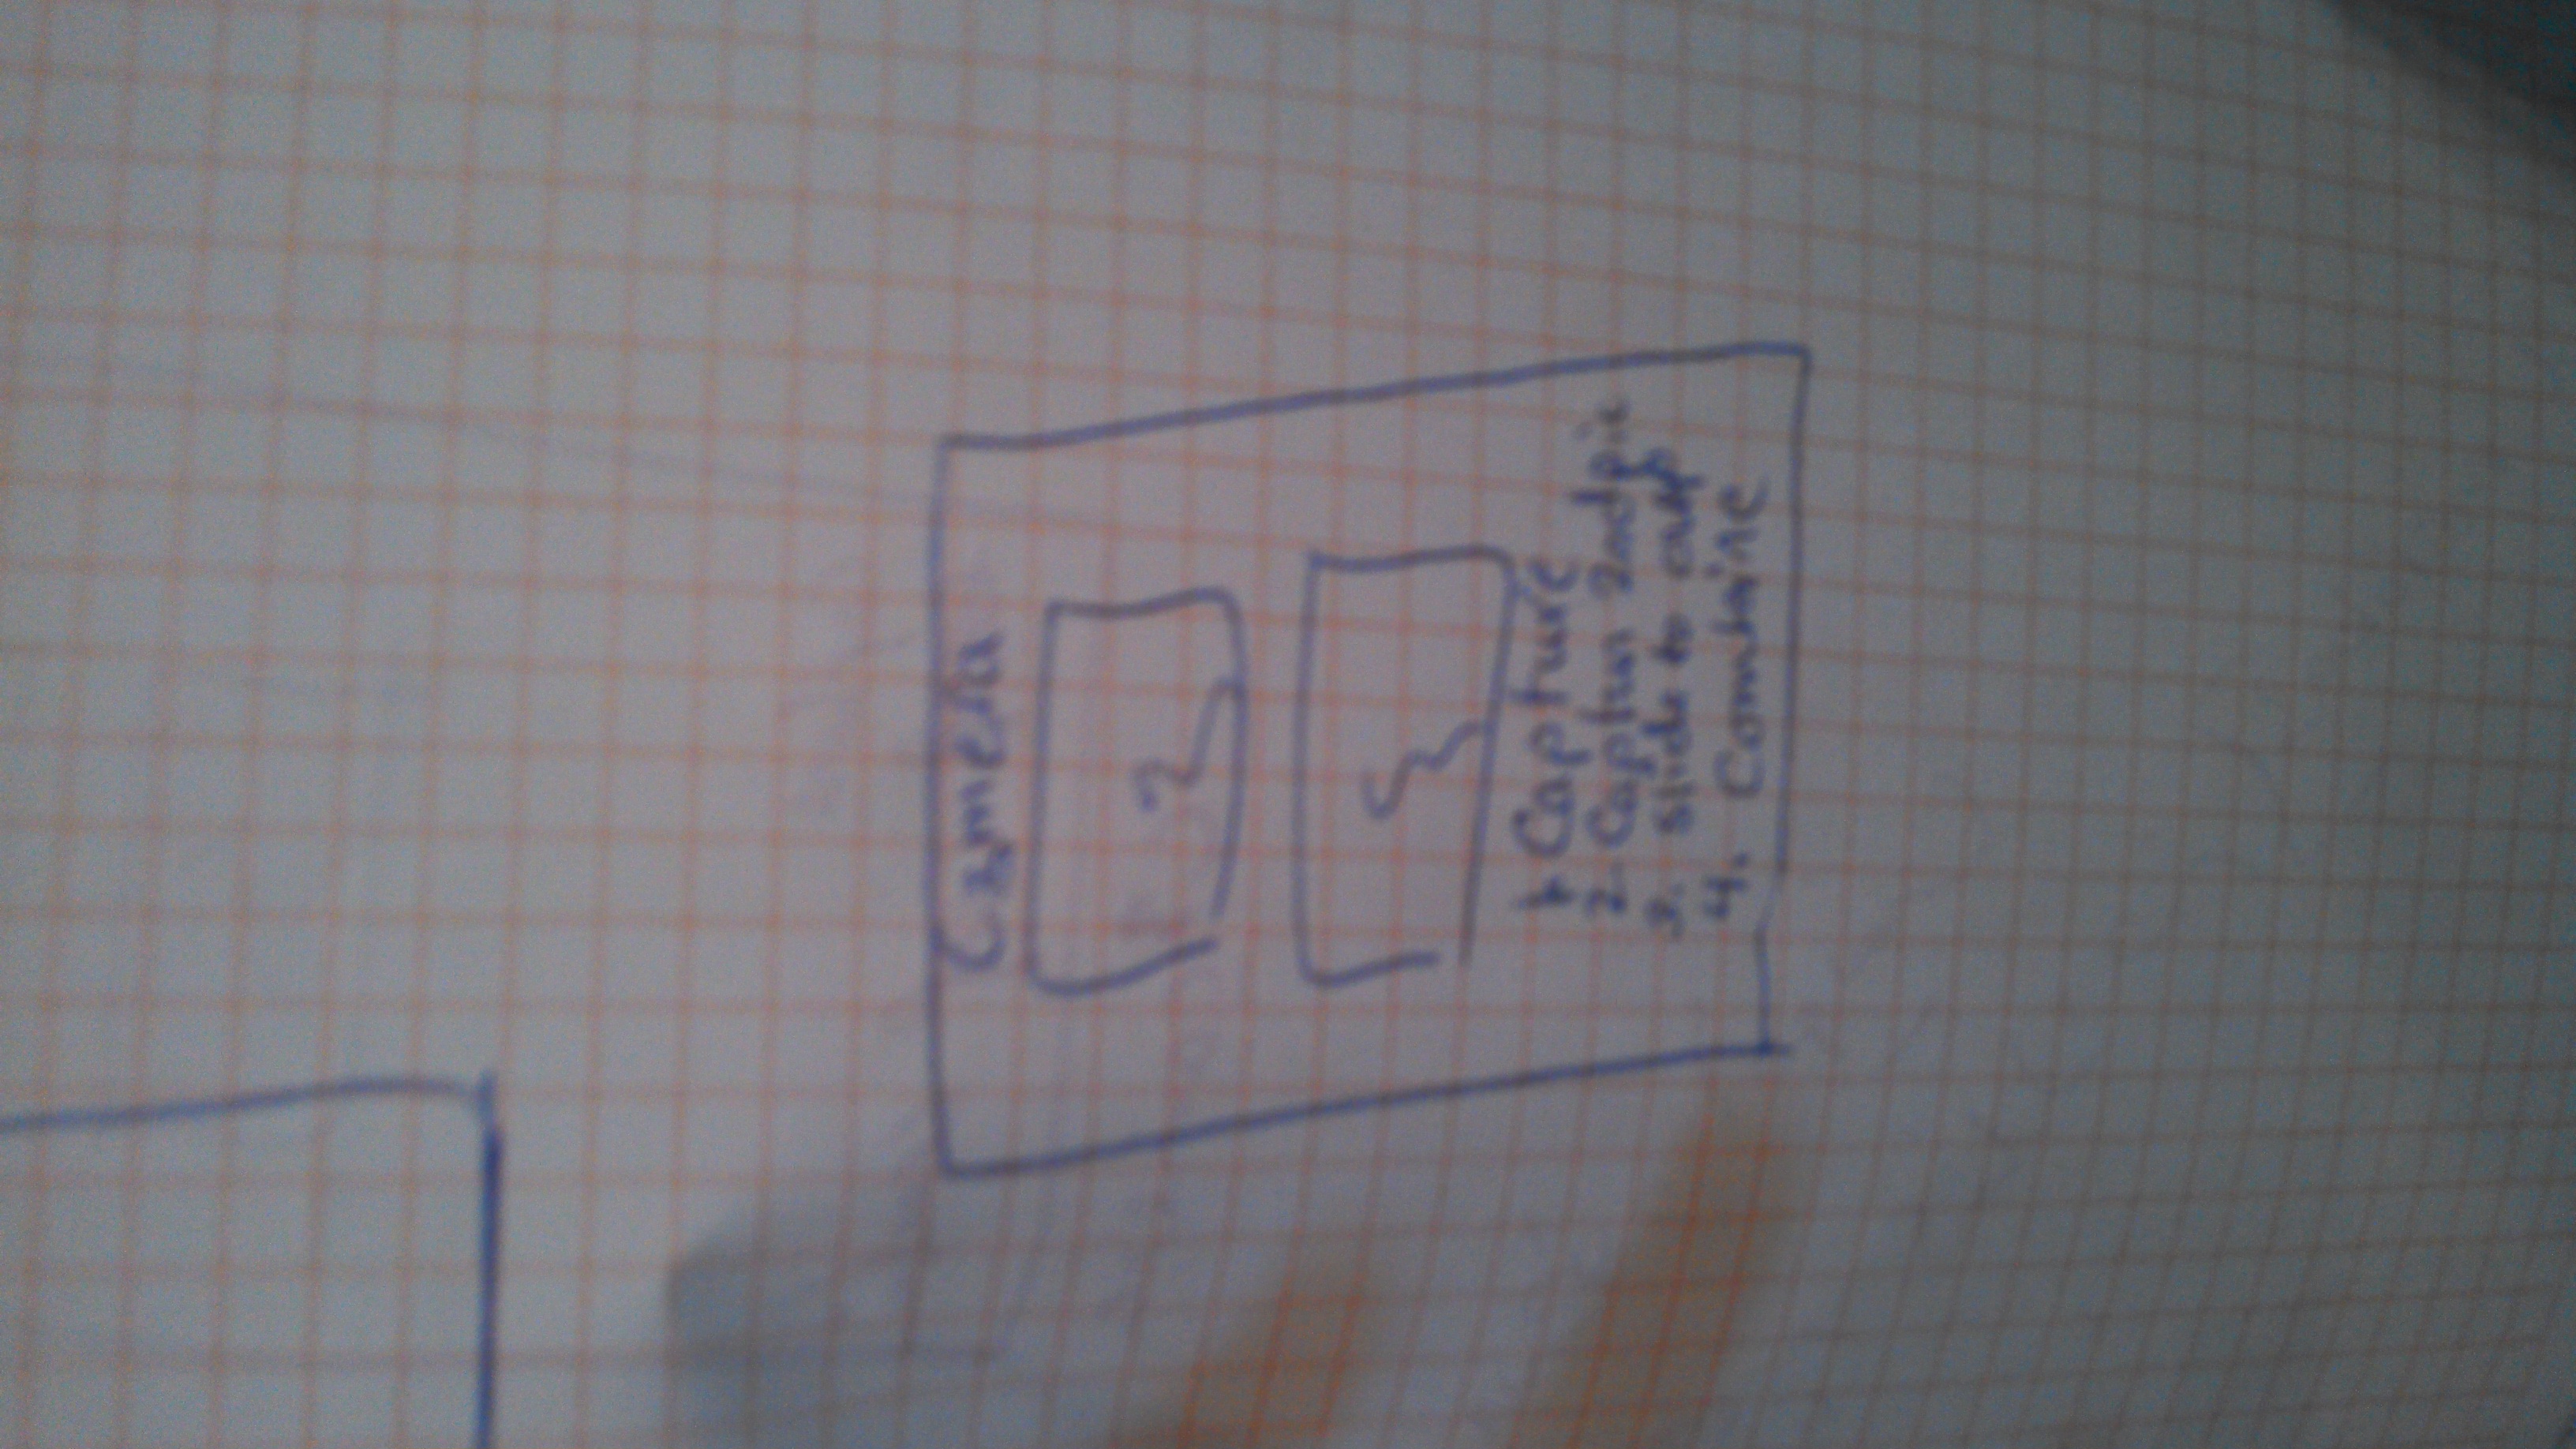 Camera
1. Capture
2. Captur 2nd pic
3. slide to
4. Combine